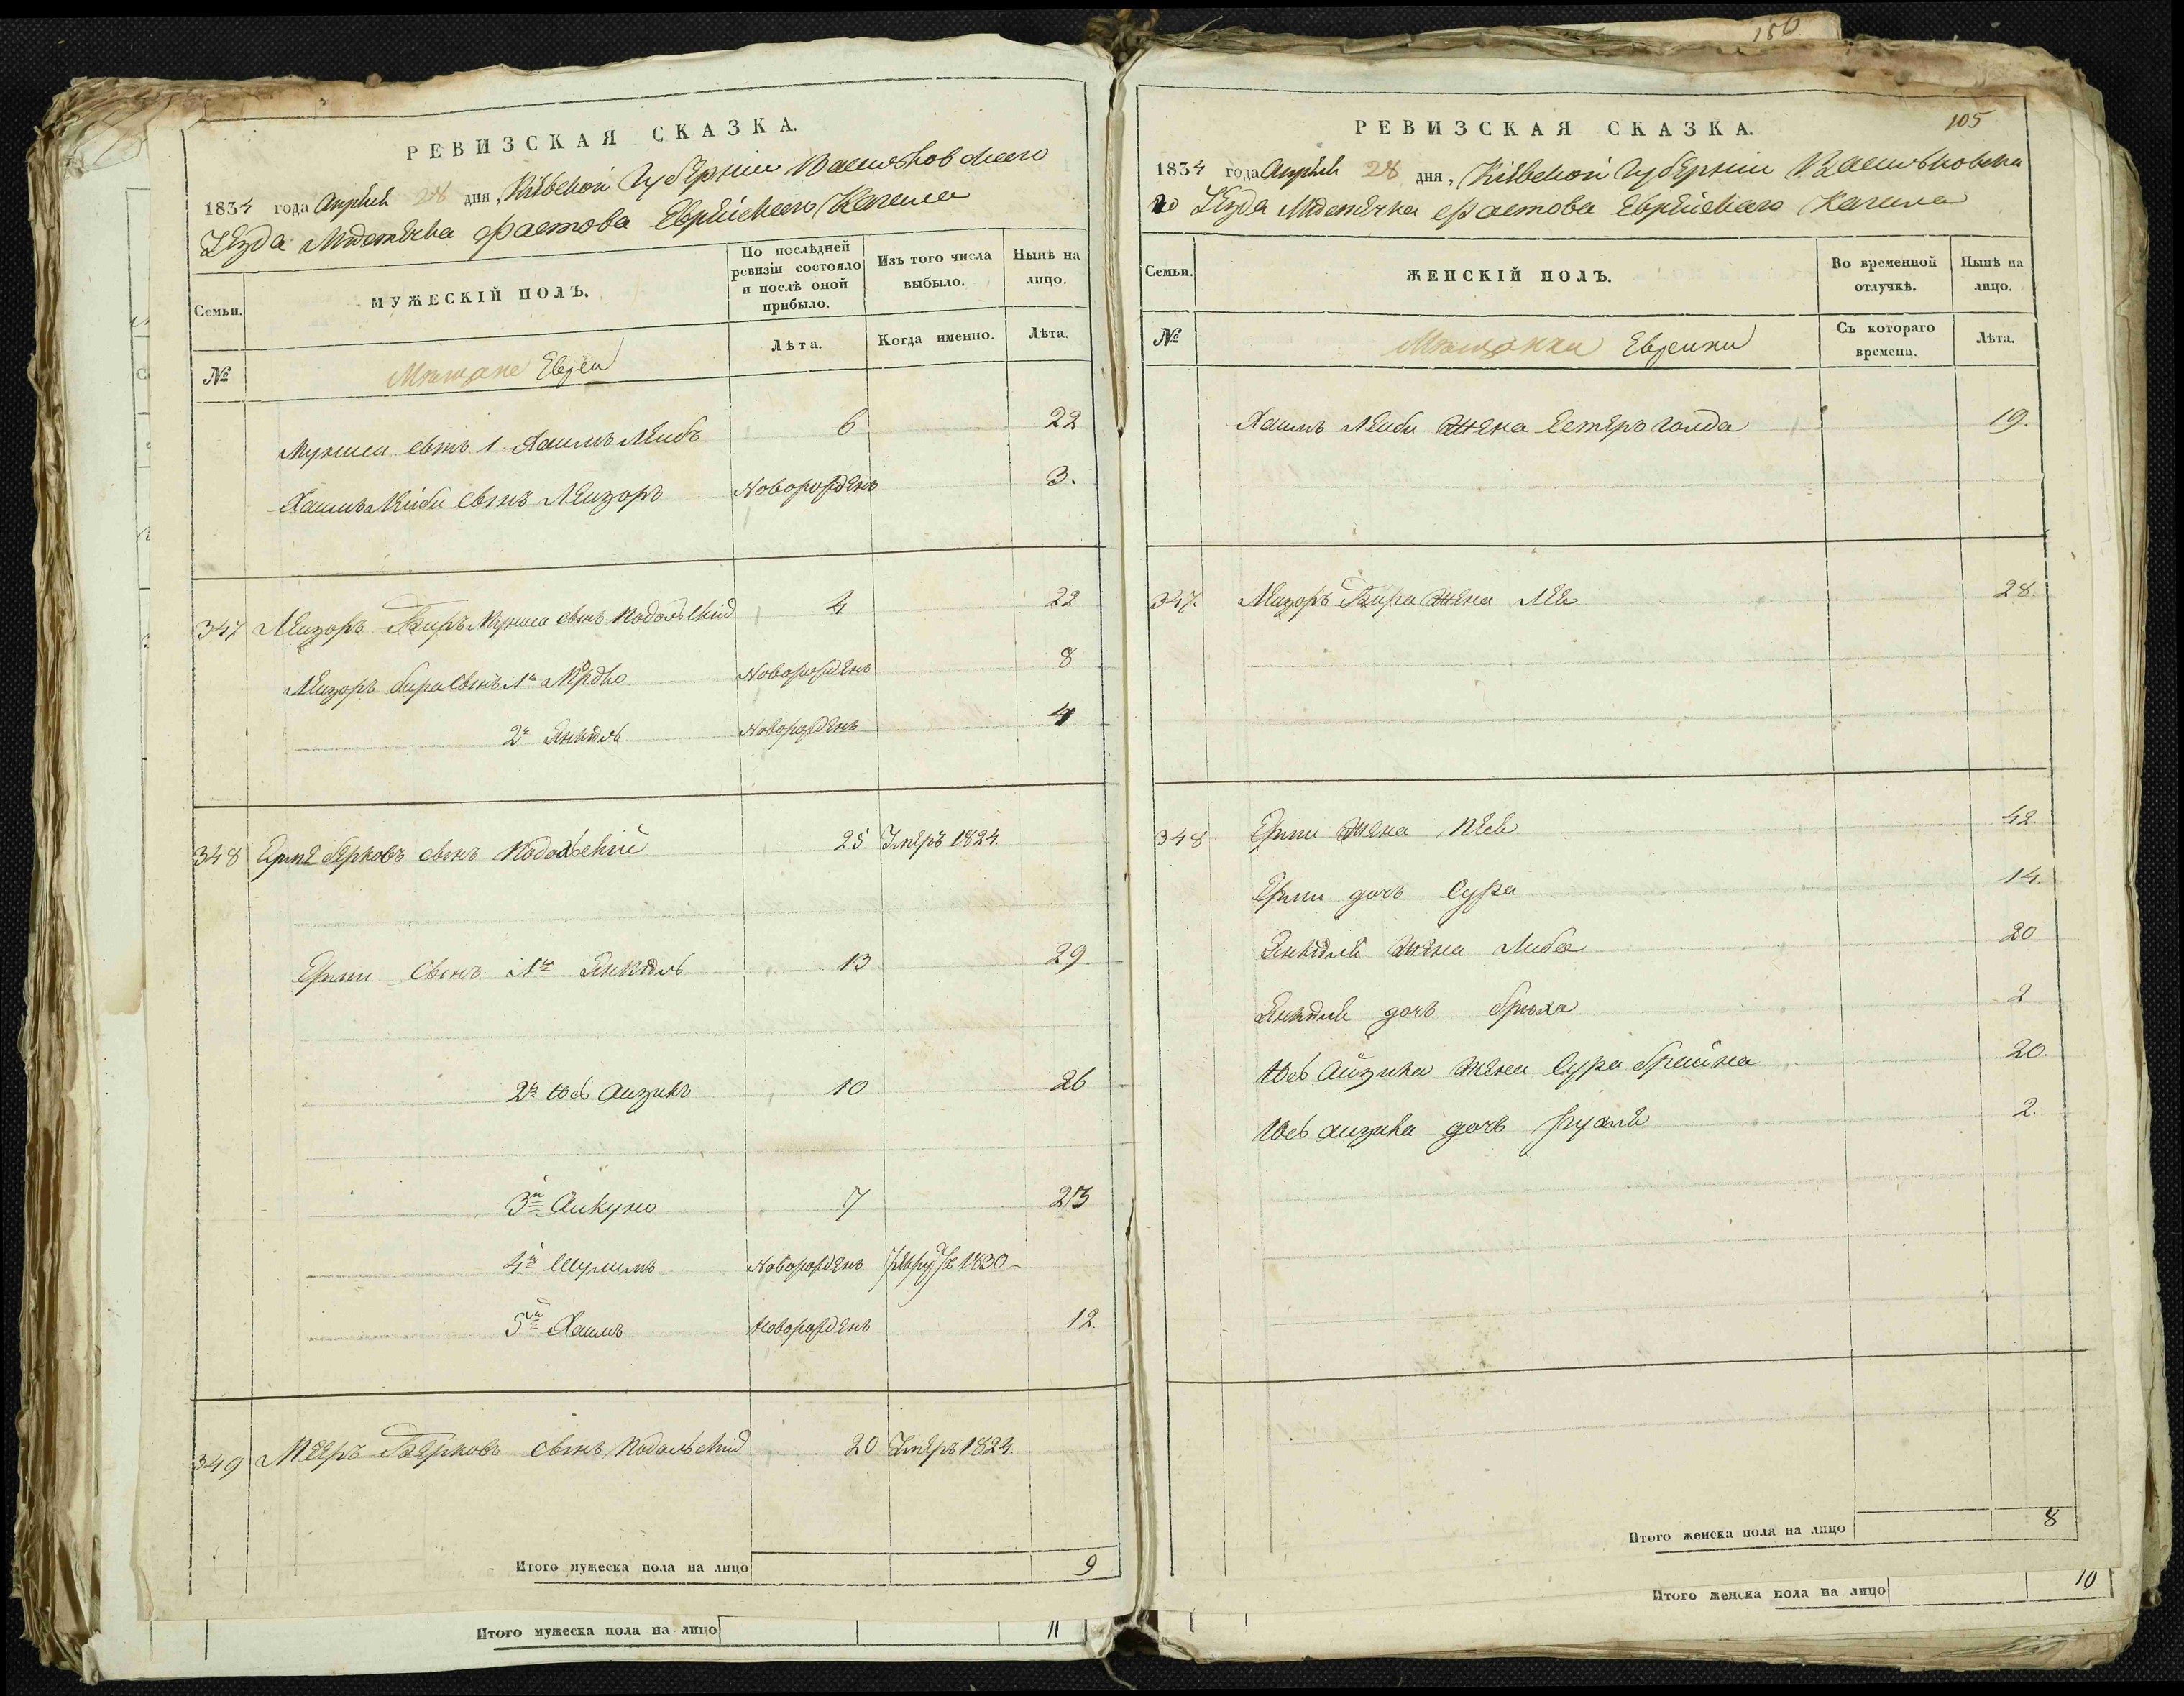 150
РЕВИЗСКАЯ СКАЗКА.
1834 года Апреля 28 дня, Кіевской Губерніи Васильковскаго
Уезда Местечка Фастова Еврейскаго Кагала
Семьи.
МУЖЕСКІЙ ПОЛЪ.
По послѣдней ревизіи состояло и послѣ оной прибыло.
Изъ того числа выбыло.
Нынѣ на лицо.
№
Мещане Евреи
Лѣта.
Когда именно.
Лѣта.
сынъ 1 Хаимъ Леибъ 6 22
Хаимъ Леиби сынъ Леизоръ Новорожденъ 3.
347 Леизоръ Биръ сынъ Подольскій 4 22
Леизоръ бира сынъ 1й Мордко Новорожденъ 8
2й Янкель Новорожденъ 4
348 Берковъ сынъ Подольскій 25 Умеръ 1824.
сынъ 1й Янкель 13 29
2й Юсь Аизикъ 10 26
3й 7 23
4й Шулимъ Новорожденъ 1830
5й Хаимъ Новорожденъ 12.
349 Мееръ Берковъ сынъ Подольскій 20 Умеръ 1824.
Итого мужеска пола на лицо 9
Итого мужеска пола на лицо 11
105
РЕВИЗСКАЯ СКАЗКА.
1834 года Апреля 28 дня, Кіевской Губерніи Васильковска
го Уезда Местечка Фастова Еврейскаго Кагала
Семьи.
ЖЕНСКІЙ ПОЛЪ.
Во временной отлучкѣ.
Нынѣ на лицо.
№
Мещанки Еврейки
Съ котораго времени.
Лѣта.
Хаимъ Леиби жена Естеръ голда 19.
347. Леизоръ Бира жена Лея 28.
348 жена Песя 42.
дочь Сура 14.
Янкеля жена Либа 20
Янкеля дочь брюха 2
Юсь Айзика жена Сура брейна 20.
Юсь аизика дочь рухля 2.
Итого женска пола на лицо 8
Итого женска пола на лицо 10